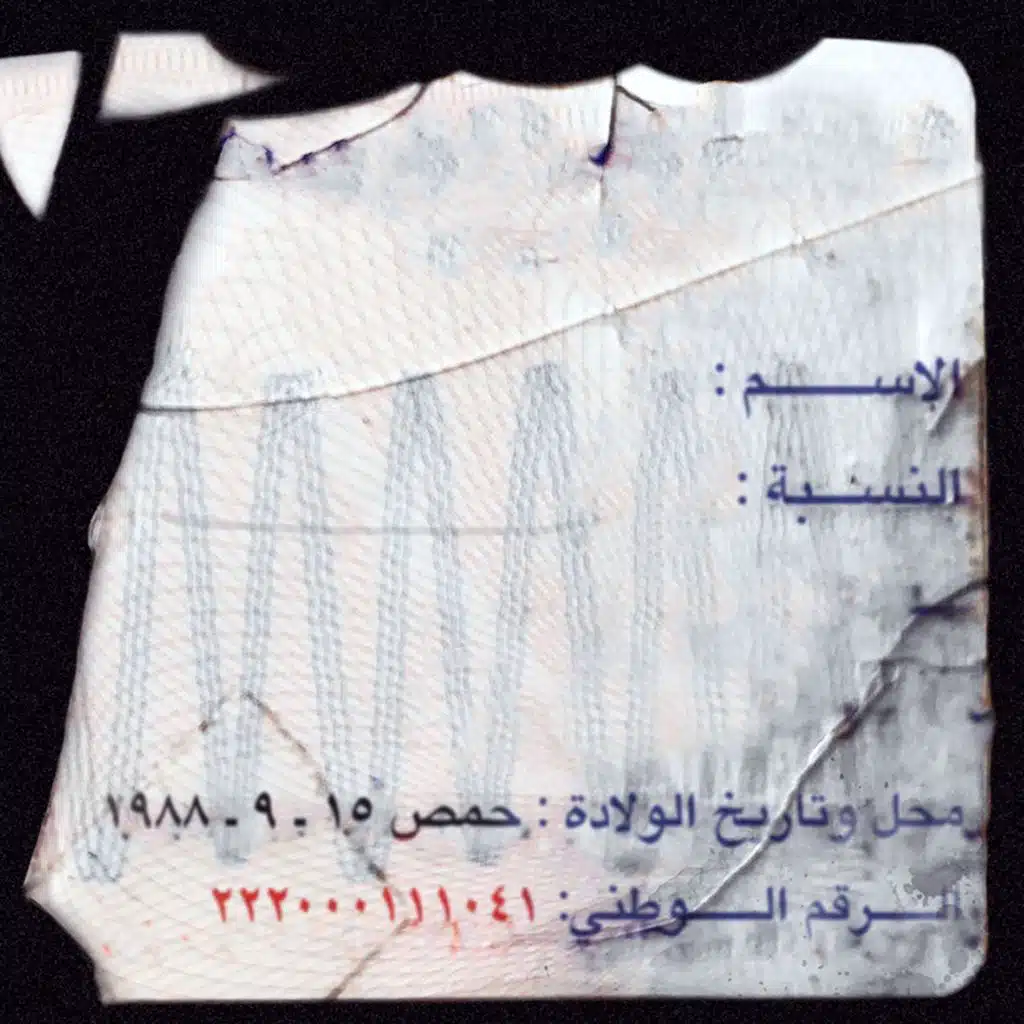 الاسم :
النسبة :
محل وتاريخ الولادة : حمص ١٥ - ٩ - ١٩٨٨
الرقم الوطني: ٢٢٢٠٠٠١١١٠٤١